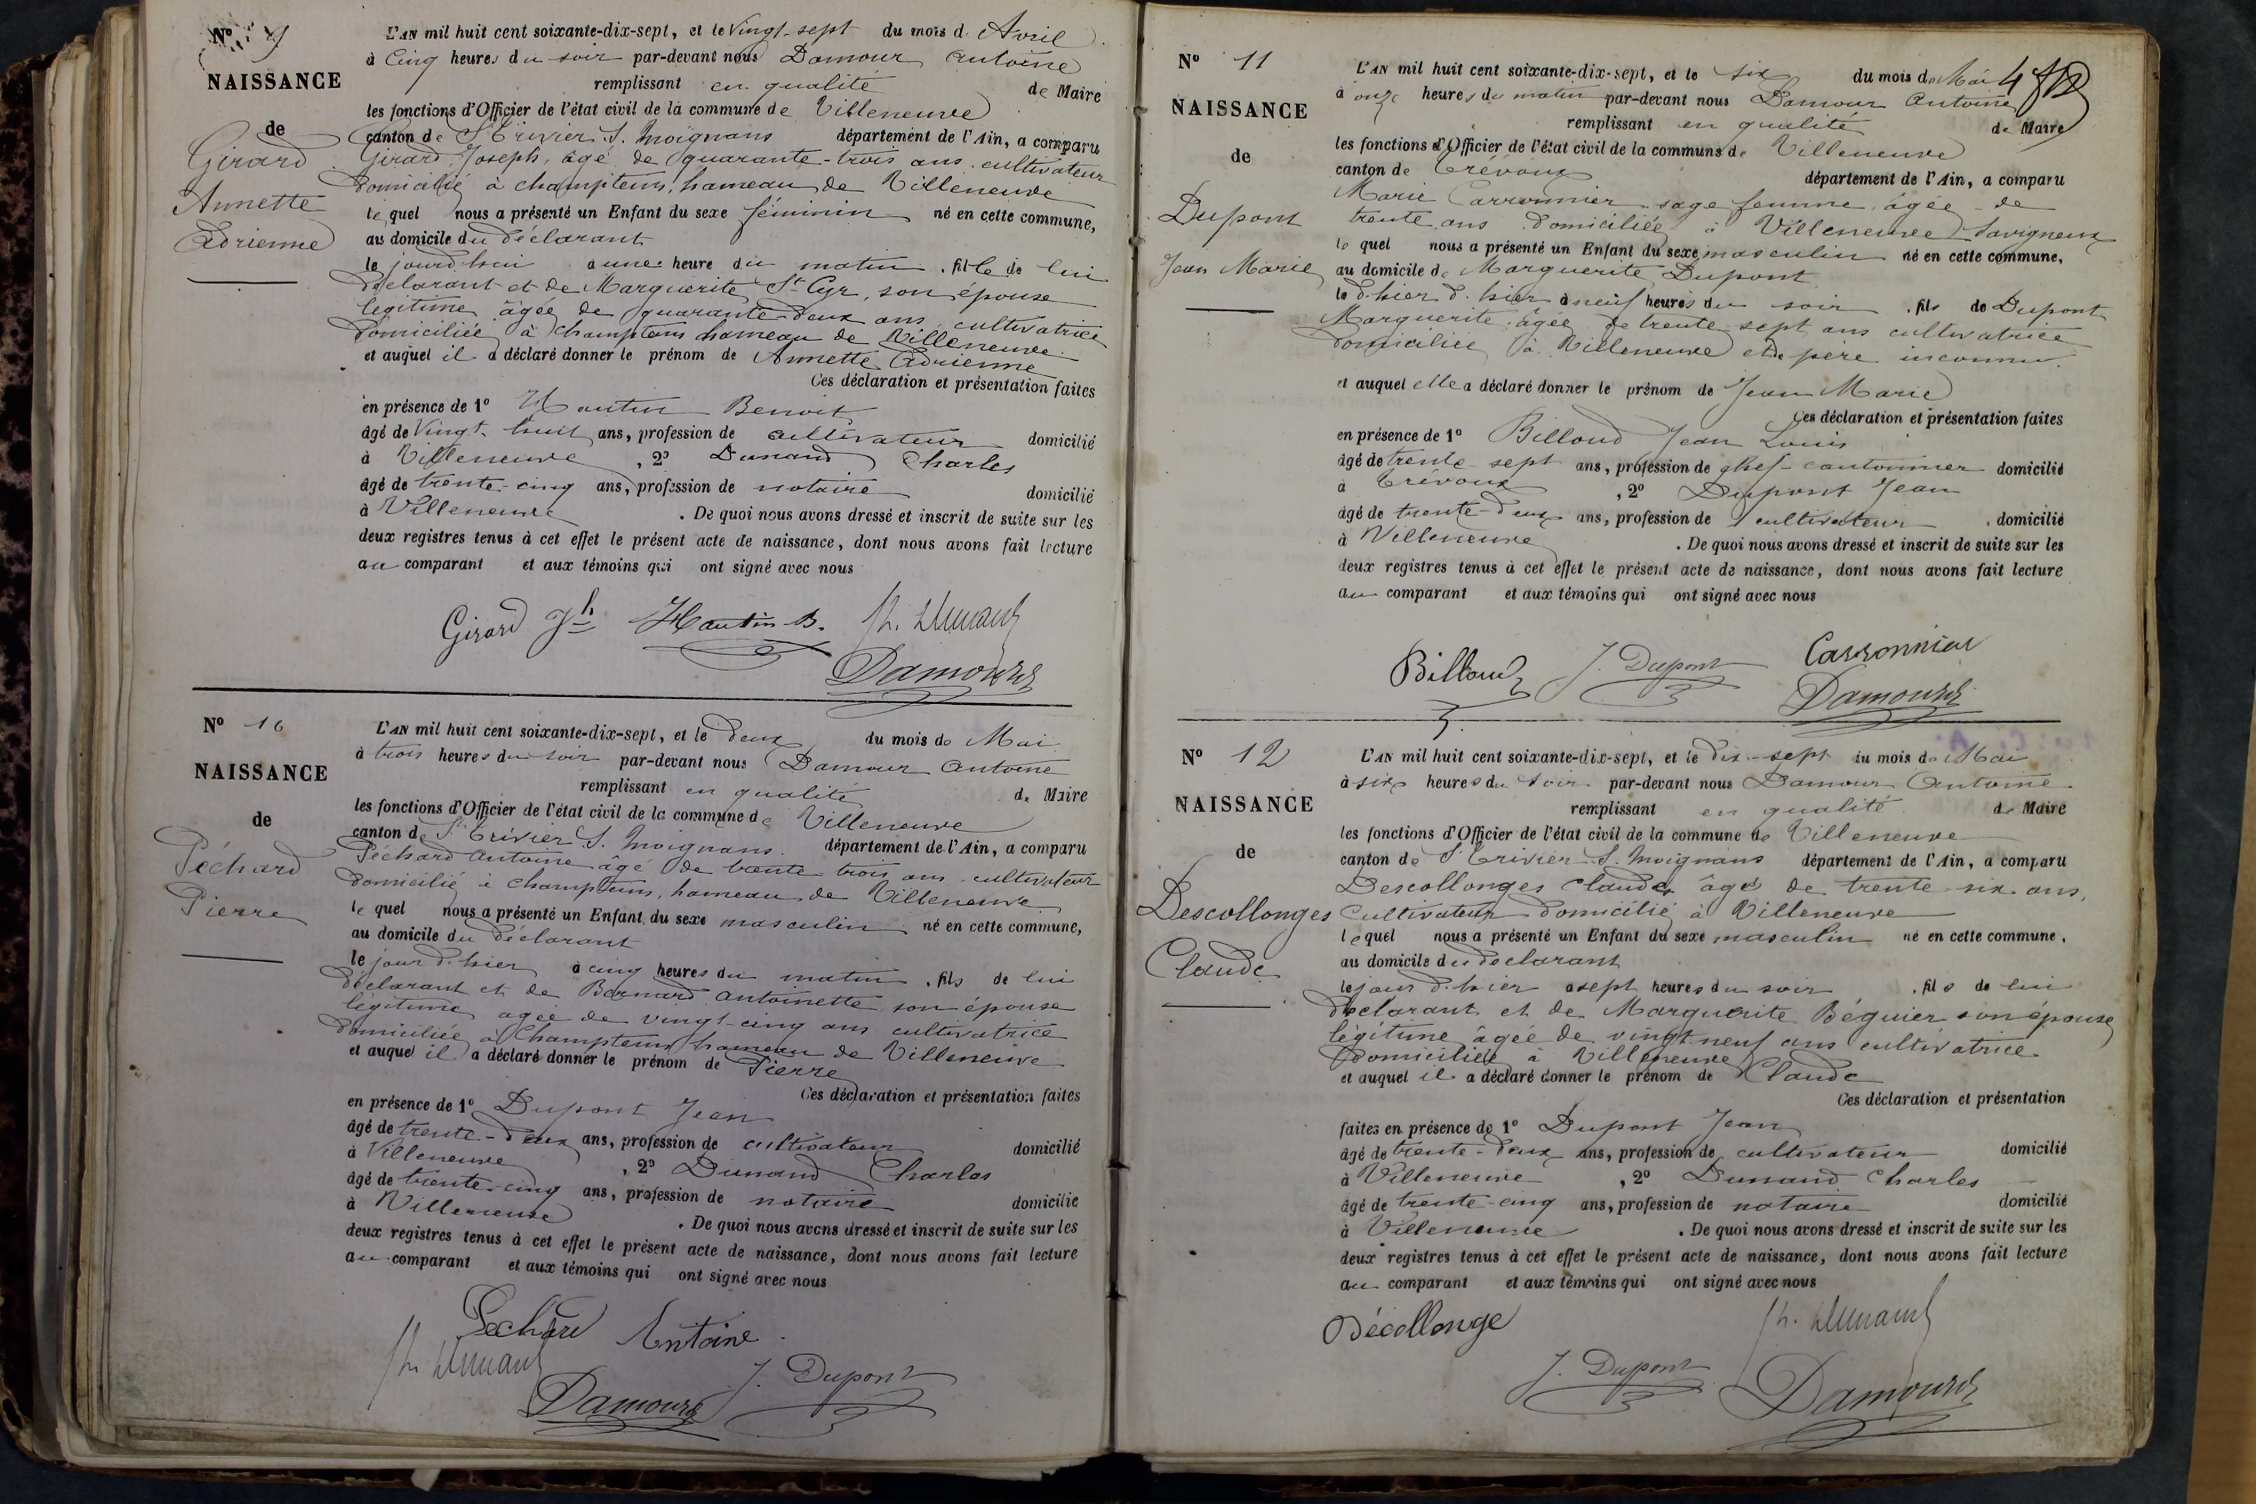 Nº 9
NAISSANCE
de
Girard
Annette
Adrienne
L'AN mil huit cent soixante-dix-sept, et le Vingt-sept du mois d'Avril
à Cinq heures du soir par-devant nous Damour Antoine
remplissant en qualité de Maire
les fonctions d'Officier de l'état civil de la commune de Villeneuve
canton de St Trivier S. Moignans département de l'Ain, a comparu
Girard Joseph, âgé de quarante-trois ans cultivateur
domicilié à Champteins, hameau de Villeneuve
lequel nous a présenté un Enfant du sexe féminin né en cette commune,
au domicile du déclarant
le jourd'hui à une heure du matin, fille de lui
déclarant et de Marguerite St Cyr, son épouse
légitime âgée de quarante-deux ans cultivatrice
domiciliée à Champteins hameau de Villeneuve
et auquel il a déclaré donner le prénom de Annette Adrienne
Ces déclaration et présentation faites
en présence de 1º Hautin Benoit
âgé de Vingt-huit ans, profession de cultivateur domicilié
à Villeneuve, 2º Dunand Charles
âgé de trente-cinq ans, profession de notaire domicilié
à Villeneuve. De quoi nous avons dressé et inscrit de suite sur les
deux registres tenus à cet effet le présent acte de naissance, dont nous avons fait lecture
au comparant et aux témoins qui ont signé avec nous
Girard Jh Hautin B. Ch. Dunand
Damour
Nº 10
NAISSANCE
de
Péchard
Pierre
L'AN mil huit cent soixante-dix-sept, et le deux du mois de Mai
à trois heures du soir par-devant nous Damour Antoine
remplissant en qualité de Maire
les fonctions d'Officier de l'état civil de la commune de Villeneuve
canton de St Trivier S. Moignans département de l'Ain, a comparu
Péchard Antoine âgé de trente trois ans cultivateur
domicilié à Champteins, hameau de Villeneuve
le quel nous a présenté un Enfant du sexe masculin né en cette commune,
au domicile du déclarant
le jour d'hier à cinq heures du matin, fils de lui
déclarant et de Bernard Antoinette son épouse
légitime âgée de vingt-cinq ans cultivatrice
domiciliée à Champteins hameau de Villeneuve
et auquel il a déclaré donner le prénom de Pierre
Ces déclaration et présentation faites
en présence de 1º Dupont Jean
âgé de trente-deux ans, profession de cultivateur domicilié
à Villeneuve, 2º Dunand Charles
âgé de trente-cinq ans, profession de notaire domicilié
à Villeneuve. De quoi nous avons dressé et inscrit de suite sur les
deux registres tenus à cet effet le présent acte de naissance, dont nous avons fait lecture
au comparant et aux témoins qui ont signé avec nous
Péchard Antoine
Ch. Dunand J. Dupont
Damour
Nº 11
NAISSANCE
de
Dupont
Jean Marie
L'AN mil huit cent soixante-dix-sept, et le six du mois de Mai 4
à onze heures du matin par-devant nous Damour Antoine
remplissant en qualité de Maire
les fonctions d'Officier de l'état civil de la commune de Villeneuve
canton de Trévoux département de l'Ain, a comparu
Marie Carronnier sage femme âgée de
trente ans domiciliée à Villeneuve Savigneux
le quel nous a présenté un Enfant du sexe masculin né en cette commune,
au domicile de Marguerite Dupont
le d'hier d'hier à neuf heures du soir, fils de Dupont
Marguerite âgée de trente-sept ans cultivatrice
domiciliée à Villeneuve et de père inconnu.
et auquel elle a déclaré donner le prénom de Jean Marie
Ces déclaration et présentation faites
en présence de 1º Billoud Jean Louis
âgé de trente-sept ans, profession de chef-cantonnier domicilié
à Trévoux, 2º Dupont Jean
âgé de trente-deux ans, profession de cultivateur domicilié
à Villeneuve. De quoi nous avons dressé et inscrit de suite sur les
deux registres tenus à cet effet le présent acte de naissance, dont nous avons fait lecture
au comparant et aux témoins qui ont signé avec nous
Billoud J. Dupont Carronnier
Damour
Nº 12
NAISSANCE
de
Descollonges
Claude
L'AN mil huit cent soixante-dix-sept, et le dix-sept du mois de Mai
à six heures du soir par-devant nous Damour Antoine
remplissant en qualité de Maire
les fonctions d'Officier de l'état civil de la commune de Villeneuve
canton de St Trivier S. Moignans département de l'Ain, a comparu
Descollonges Claude âgé de trente-six ans,
cultivateur domicilié à Villeneuve
lequel nous a présenté un Enfant du sexe masculin né en cette commune,
au domicile du déclarant
le jour d'hier à sept heures du soir, fils de lui
déclarant et de Marguerite Béguier son épouse
légitime âgée de vingt neuf ans cultivatrice
domiciliée à Villeneuve
et auquel il a déclaré donner le prénom de Claude
Ces déclaration et présentation
faites en présence de 1º Dupont Jean
âgé de trente-deux ans, profession de cultivateur domicilié
à Villeneuve, 2º Dunand Charles
âgé de trente-cinq ans, profession de notaire domicilié
à Villeneuve. De quoi nous avons dressé et inscrit de suite sur les
deux registres tenus à cet effet le présent acte de naissance, dont nous avons fait lecture
au comparant et aux témoins qui ont signé avec nous
Décollonge Ch. Dunand
J. Dupont Damour